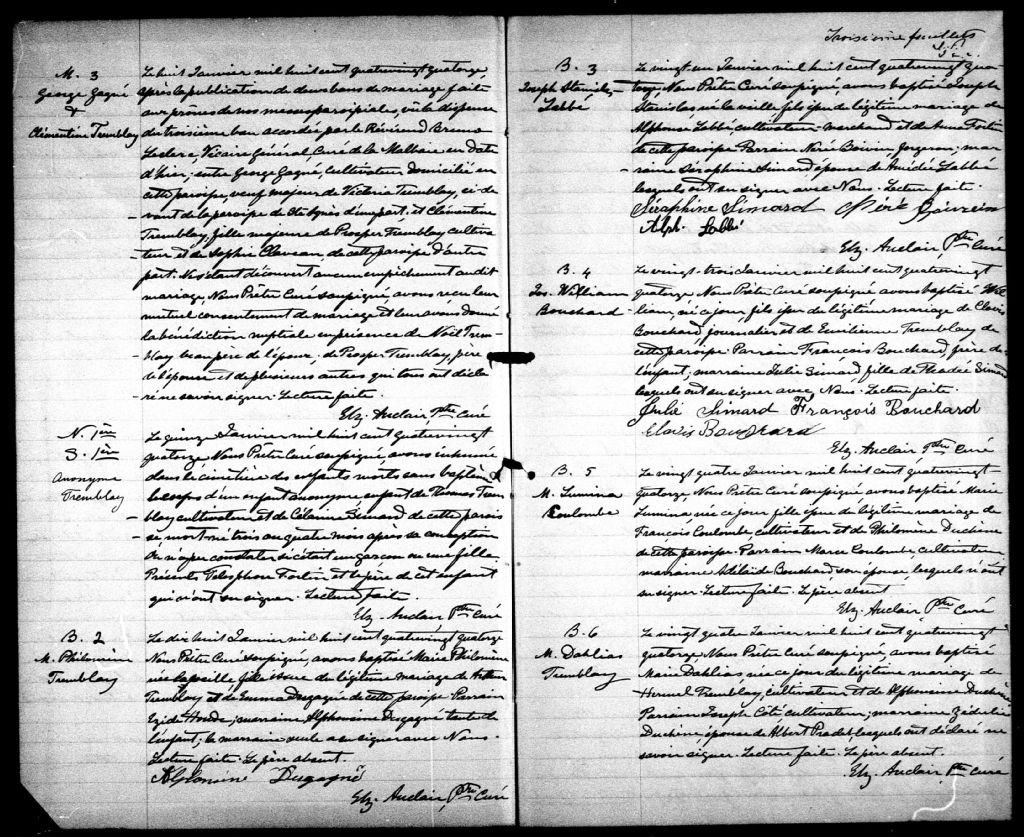 M. 3
George Gagné
&
Clémentine Tremblay
Le huit Janvier mil huit cent quatrevingt quatorze,
après la publication de deux bans de mariage faite
aux prônes de nos messes paroissiales, vû la dispense
du troisième ban accordée par le Révérend Bruno
Leclerc, Vicaire Général, Curé de la Malbaie en date
d'hier; entre George Gagné, cultivateur domicilié en
cette paroisse, veuf majeur de Victoria Tremblay, ci-de-
vant de la paroisse de Ste Agnès d'une part; et Clémentine
Tremblay, fille majeure de Prosper Tremblay, cultiva-
teur et de Sophie Claveau, de cette paroisse d'autre
part. Ne s'étant découvert aucun empêchement au dit
mariage, Nous Prêtre Curé soussigné, avons reçu leur
mutuel consentement de mariage et leur avons donné
la bénédiction nuptiale en présence de Noël Trem-
blay beaupère de l'époux, de Prosper Tremblay, père
de l'épouse et de plusieurs autres qui tous ont décla-
ré ne savoir signer. Lecture faite.
Elz. Auclair, Ptre Curé
N. 1ère
S. 1ère
Anonyme
Tremblay
Le quinze Janvier mil huit cent quatrevingt
quatorze, Nous Prêtre Curé soussigné, avons inhumé
dans le cimetière des enfants morts sans baptême
le corps d'un enfant anonyme, enfant de Thomas Trem-
blay cultivateur et de Célanire Simard de cette parois-
se, mort né trois ou quatre mois après sa conception
On n'a pu constater si c'était un garçon ou une fille.
Présents Télesphore Fortin et le père de cet enfant
qui n'ont su signer. Lecture faite.
Elz. Auclair Ptre Curé
B. 2
M. Philomène
Tremblay
Le dix huit Janvier mil huit cent quatrevingt quatorze
Nous Prêtre Curé soussigné, avons baptisé Marie Philomène
née la veille fille issue du légitime mariage de
Tremblay et de Emma Dugagné de cette paroisse. Parrain
Ezide marraine Alphonsine Dugagné tante de
l'enfant; la marraine seule a su signer avec Nous.
Lecture faite. Le père absent.
Alphonsine Dugagné
Elz. Auclair, Ptre Curé
Troisième feuillet
B. 3
Joseph Stanislas
Labbé
Le vingt un Janvier mil huit cent quatrevingt qua-
torze, Nous Prêtre Curé soussigné, avons baptisé Joseph
Stanislas, né la veille, fils issu du légitime mariage de
Alphonse Labbé, cultivateur-marchand et de Anne Fortin
de cette paroisse. Parrain Néré Boivin, forgeron; mar-
raine Séraphine Simard épouse de Amédée Labbé
lesquels ont su signer avec Nous. Lecture faite.
Séraphine Simard Néré Boivin
Alph. Labbé
Elz. Auclair, Ptre Curé
B. 4
Jos. William
Bouchard
Le vingt-trois Janvier mil huit cent quatrevingt
quatorze, Nous Prêtre Curé soussigné avons baptisé Wil-
liam, né ce jour, fils issu du légitime mariage de Clovis
Bouchard, journalier et de Emilienne Tremblay de
cette paroisse. Parrain François Bouchard, frère de
l'enfant; marraine Julie Simard fille de Thadée Simard
lesquels ont su signer avec Nous. Lecture faite.
Julie Simard François Bouchard
Clovis Bouchard
Elz. Auclair Ptre Curé
B. 5
M. Lumina
Coulombe
Le vingt quatre Janvier mil huit cent quatrevingt
quatorze, Nous Prêtre Curé soussigné avons baptisé Marie
Lumina née ce jour fille issue du légitime mariage de
François Coulombe, cultivateur, et de Philomène Duchène
de cette paroisse. Parrain Marc Coulombe, cultivateur,
marraine Adélaïde Bouchard, son épouse, lesquels n'ont
su signer. Lecture faite. Le père absent
Elz. Auclair Ptre Curé
B. 6
M. Dahlias
Tremblay
Le vingt quatre Janvier mil huit cent quatrevingt
quatorze, Nous Prêtre Curé soussigné, avons baptisé
Marie Dahlias, née ce jour du légitime mariage de
Tremblay, cultivateur et de Alphonsine Duchène
Parrain Joseph Côté, cultivateur; marraine Zédélie
Duchène, épouse de Albert Pradet, lesquels ont déclaré ne
savoir signer. Lecture faite. Le père absent.
Elz. Auclair, Ptre Curé